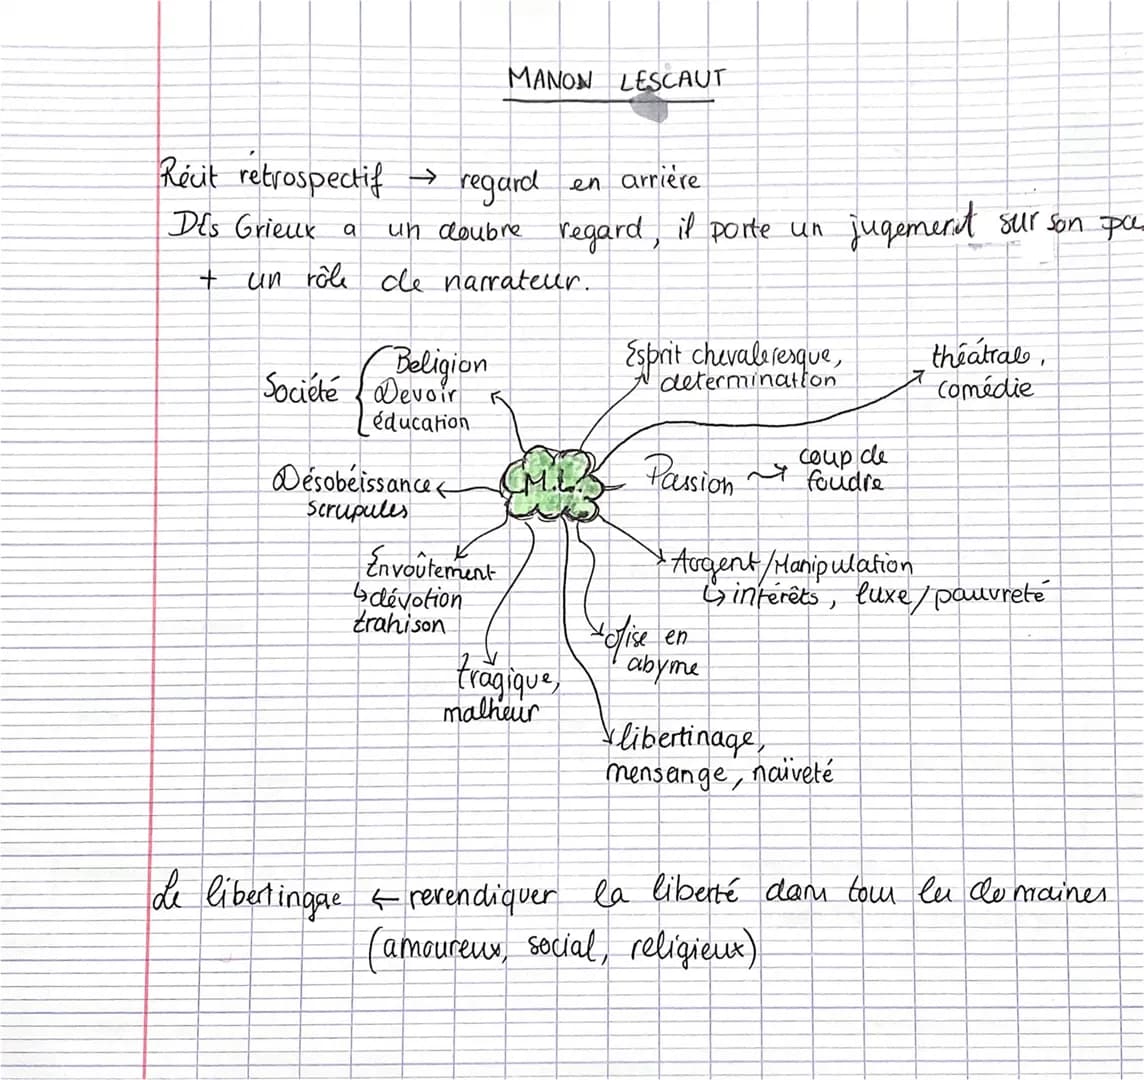 MANON LESCAUT
Récit rétrospectif → regard en arrière
Des Grieux a un doubre regard, il porte un jugement sur son pa
+ un rôle de narrateur.
Société { Beligion
Devoir
éducation
Esprit chevaleresque,
determination
théâtrale,
comédie
M.L.
Passion → coup de
foudre
Désobéissance
scrupules
Envoûtement
↳ dévotion
trahison
Argent/Manipulation
↳ intérêts, luxe/pauvreté
Mise en
abyme
tragique,
malheur
libertinage,
mensange, naïveté
Le libertingae ← revendiquer la liberté dans tous les domaines
(amoureux, social, religieux)